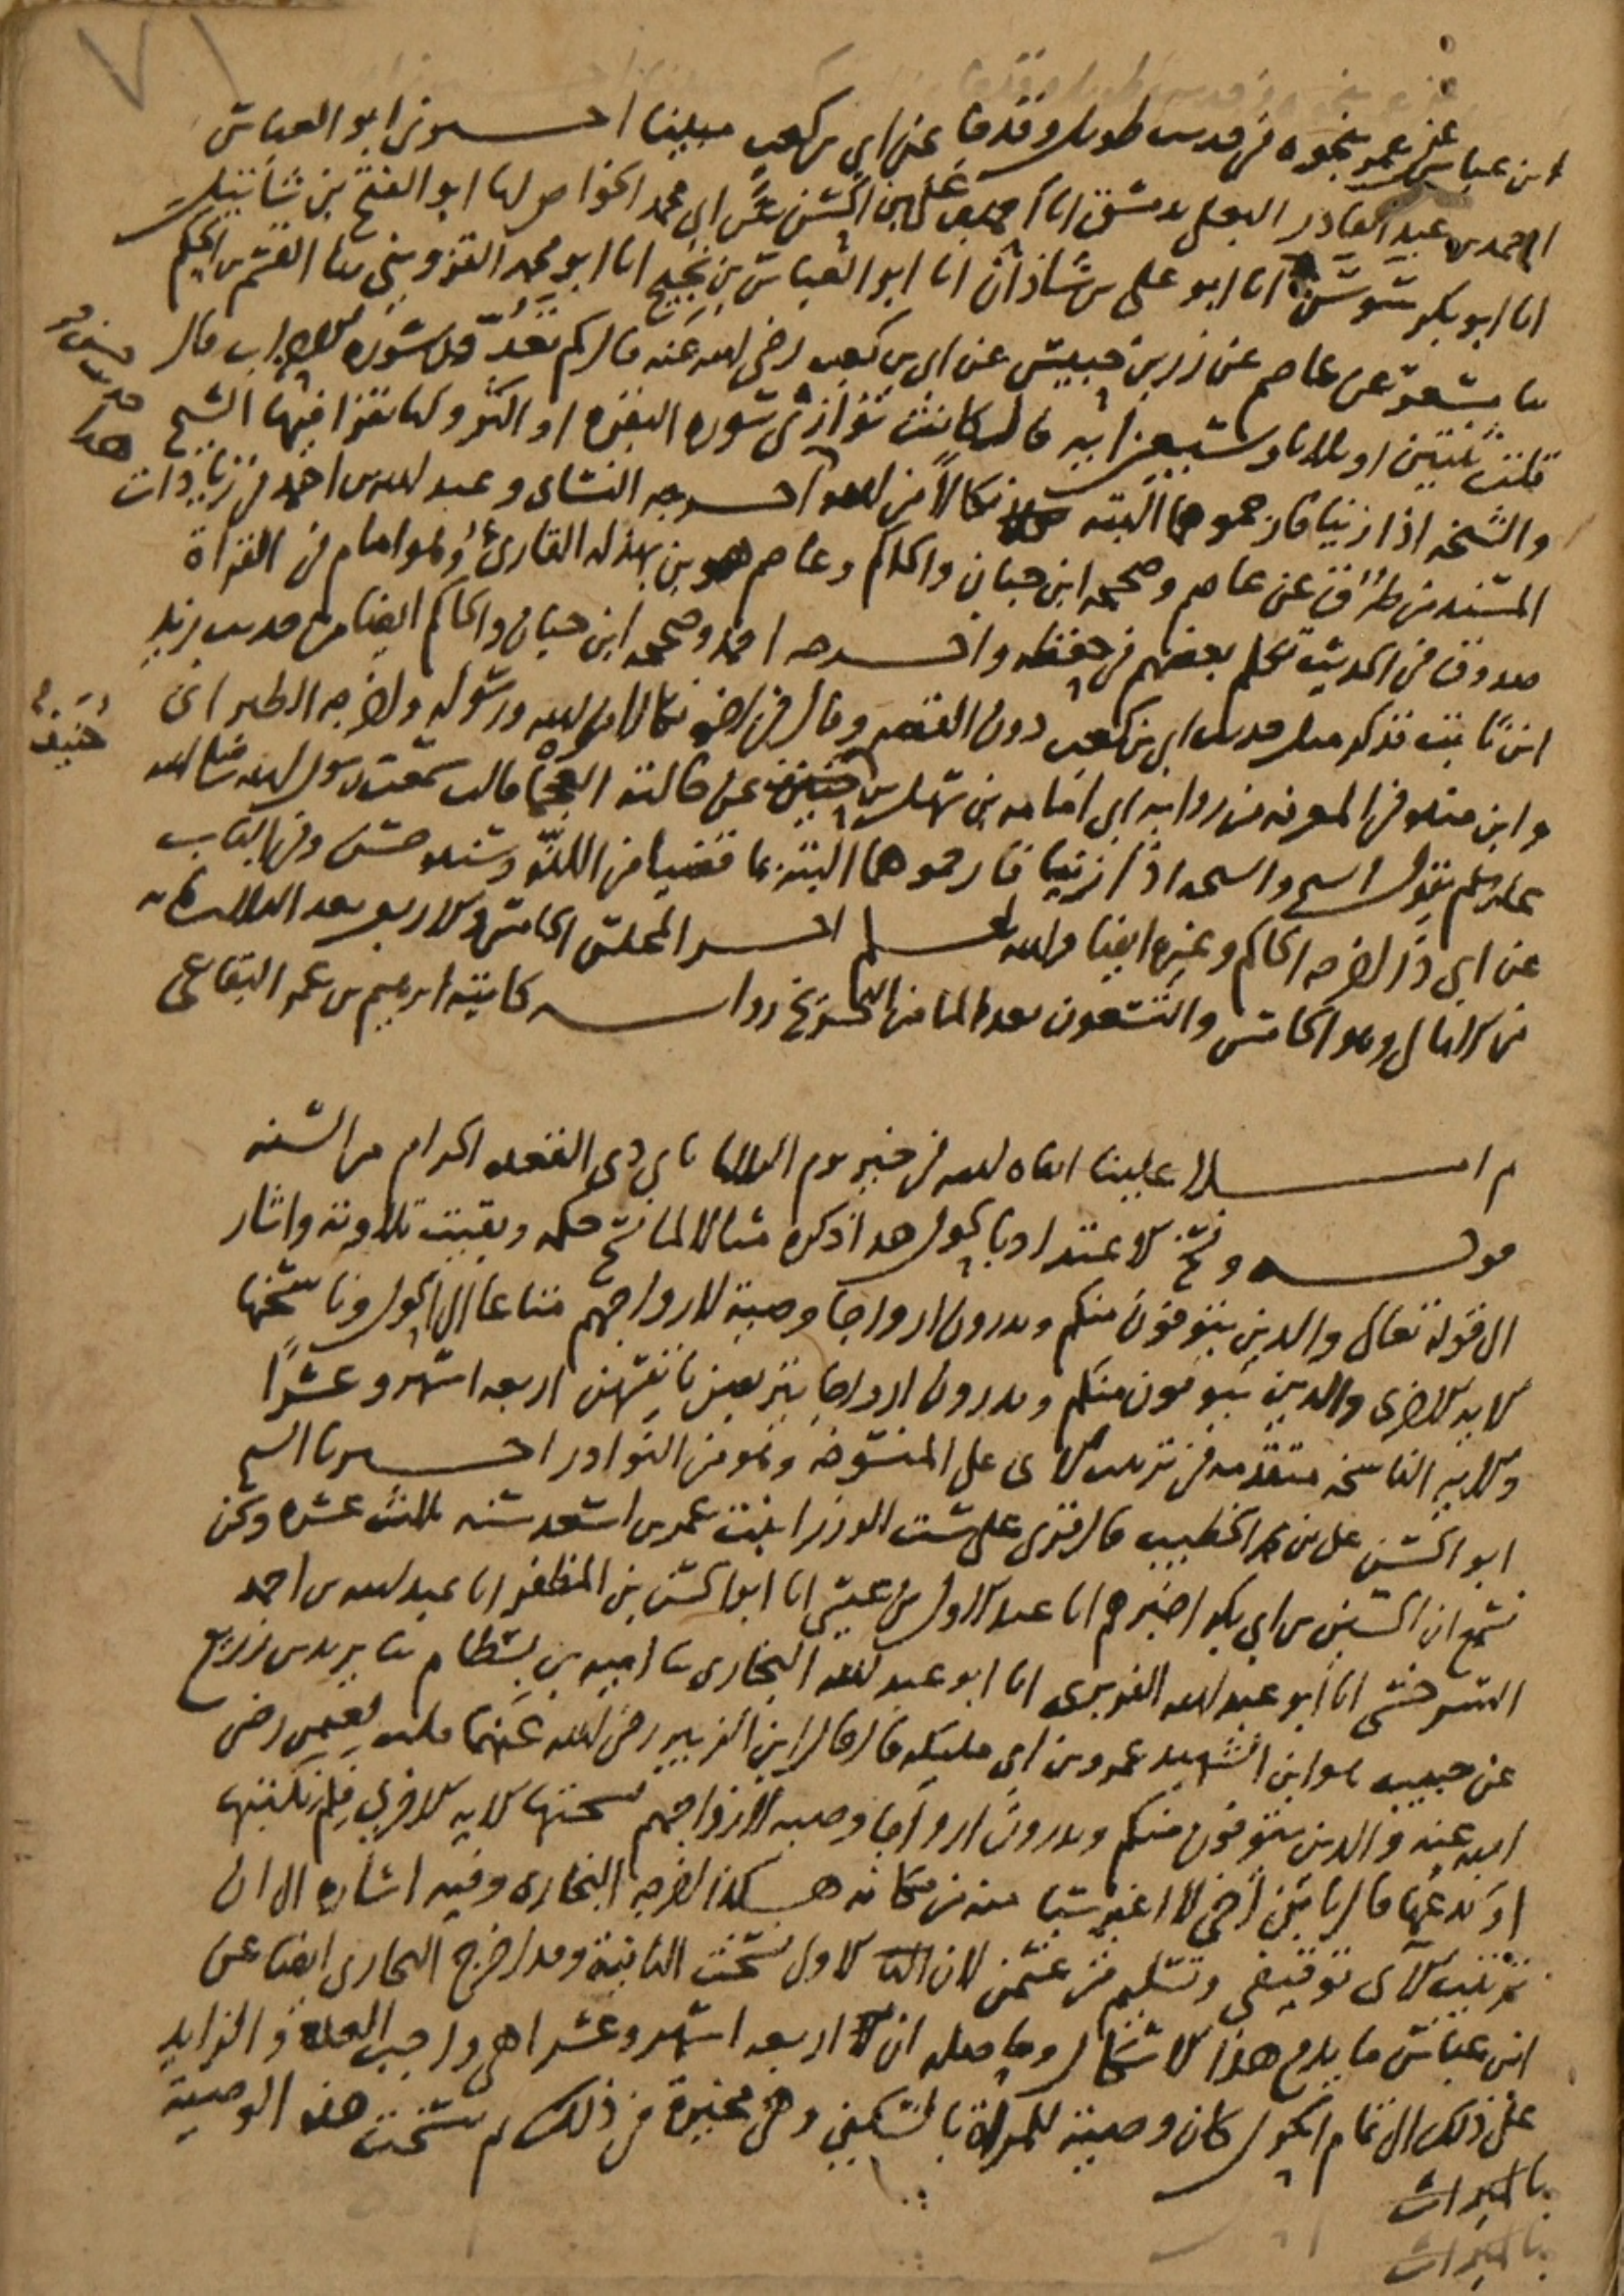 ابن عباس عن عمر بنحوه في حديث طويل وقد وقع عن ابي بن كعب مبينا اخبرني ابو العباس
احمد بن عبد القادر البعلي بدمشق انا احمد بن علي بن الحسن عن ابي محمد الخواص انا ابو الفتح بن شاتيل
انا ابو بكر بن سوسن انا ابو علي بن شاذان انا ابو العباس بن نجيح انا ابو محمد القزويني ثنا القسم بن الحكم
ثنا مسعر عن عاصم عن زر بن حبيش عن ابي بن كعب رضي الله عنه قال كم تعد قبل سورة الاحزاب قال
قلت ثنتين او ثلاثا وسبعين اية قال كانت توازي سورة البقرة او اكثر وكنا نقرا فيها الشيخ
والشيخة اذا زنيا فارجموهما البتة نكالا من الله اخرجه النسائي وعبد الله بن احمد في زيادات
المسند من طرق عن عاصم وصححه ابن حبان والحاكم وعاصم هو ابن بهدلة القارئ وهو امام في القراة
صدوق في الحديث تكلم بعضهم في حفظه واخرجه احمد وصححه ابن حبان والحاكم ايضا من حديث زيد
ابن ثابت فذكر مثل حديث ابي بن كعب دون القصة وقال في اخره نكالا من الله ورسوله واخرجه الطبراني
وابن منده في المعرفة من رواية ابي امامة بن سهل بن حنيف عن خالته العجما قالت سمعت رسول الله صلى الله
عليه وسلم يقول الشيخ والشيخة اذا زنيا فارجموهما البتة بما قضيا من اللذة وسنده حسن وفي الباب
عن ابي ذر اخرجه الحاكم وغيره ايضا والله اعلم اخر المجلس الخامس والاربعين بعد الثلثمائة
من الامالي وهو الخامس والتسعون بعد المائتين من التخريج رواية كاتبه ابراهيم بن عمر البقاعي
ثم املا علينا ابقاه الله في خير يوم الثلاثا ثاني ذي القعدة الحرام من السنة
قوله ونسخ الاعتداد بالحول هذا ذكره مثالا لما نسخ حكمه وبقيت تلاوته واشار
الى قوله تعالى والذين يتوفون منكم ويذرون ازواجا وصية لازواجهم متاعا الى الحول وناسختها
الاية الاخرى والذين يتوفون منكم ويذرون ازواجا يتربصن بانفسهن اربعة اشهر وعشرا
والاية الناسخة متقدمة في ترتيب الآي على المنسوخة وهو من النوادر اخبرنا الشيخ
ابو الحسن علي بن محمد الخطيب قال قرئ على ست الوزرا بنت عمر بن اسعد سنة ثلث عشرة ونحن
نسمع ان الحسين بن ابي بكر اخبرهم انا عبد الاول بن عيسى انا ابو الحسن بن المظفر انا عبد الله بن احمد
السرخسي انا ابو عبد الله الفربري انا ابو عبد الله البخاري ثنا امية بن بسطام ثنا يزيد بن زريع
عن حبيب هو ابن الشهيد عن ابن ابي مليكة قال قال ابن الزبير رضي الله عنهما قلت لعثمن رضي
الله عنه والذين يتوفون منكم ويذرون ازواجا وصية لازواجهم نسختها الاية الاخرى فلم تكتبها
او تدعها قال يا ابن اخي لا اغير شيا منه من مكانه هكذا اخرجه البخاري وفيه اشارة الى ان
ترتيب الآي توقيفي وتسليم من عثمن لان الاولى نسخت الثانية وقد اخرج البخاري ايضا عن
ابن عباس ما يدفع هذا الاشكال وحاصله ان اربعة اشهر وعشرا هي واجب العدة والزايد
على ذلك الى تمام الحول كان وصية للمراة بالسكنى وهي مخيرة في ذلك ثم نسخت هذه الوصية
بالميراث
حنيف